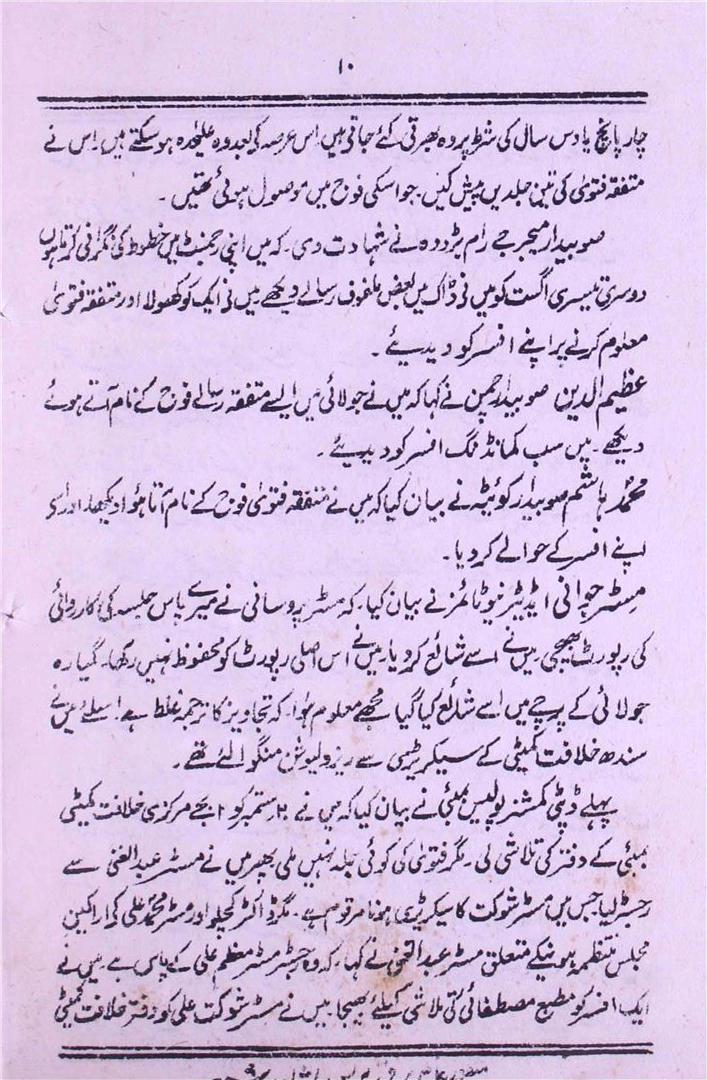 ۱۰
چار پانچ یا دس سال کی شرط پر وہ بھرتی کئے جاتی ہیں اس عرصہ کی بعد وہ علیحدہ ہو سکتے ہیں۔ اس نے
متفقہ فتویٰ کی تین جلدیں پیش کیں۔ جو اسکی فوج میں موصول ہوئی تھیں۔
صوبیدار میجر جے رام بڑودہ نے شہادت دی۔ کہ میں اپنی رجمنٹ میں خطوط کی نگرانی کرتا ہوں
دوسری تیسری اگست کو میں نی ڈاک میں بعض ملفوف رسالے دیکھے میں نی ایک کو کھولا اور متفقہ فتویٰ
معلوم کرنے پر اپنے افسر کو دیدیئے۔
عظیم الدین صوبیدار چمن نے کہا کہ میں نے جولائی میں ایسے متفقہ رسالے فوج کے نام آتے ہوئے
دیکھے۔ میں سب کمانڈنگ افسر کو دیدیئے۔
محمد ہاشم صوبیدار کوئٹہ نے بیان کیا کہ میں نے متفقہ فتویٰ فوج کے نام آتا ہوا دیکھا۔ اور اسی
اپنے افسر کے حوالے کر دیا۔
مسٹر چھانی ایڈیٹر نیو ٹائمز نے بیان کیا۔ کہ مسٹر پروسانی نے میرے پاس جلسہ کی کاروائی
کی رپورٹ بھیجی۔ میں نے اسے شائع کر دیا۔ میں نے اس اصلی رپورٹ کو محفوظ نہیں رکھا۔ گیارہ
جولائی کے پرچے میں اسے شائع کیا گیا مجھے معلوم ہوا۔ کہ تجاویز کا ترجمہ غلط ہے۔ اسلئے میں نے
سندھ خلافت کمیٹی کے سیکریٹری سے ریزولیوشن منگوالئے تھے۔
پہلے ڈپٹی کمشنر پولیس بمبئی نے بیان کیا کہ میں نے ۲۰ ستمبر کو ۲ بجے مرکزی خلافت کمیٹی
بمبئی کے دفتر کی تلاشی لی۔ مگر فتویٰ کی کوئی جلد نہیں ملی پھر میں نے مسٹر عبدالغنی سے
رجسٹر لیا جس میں مسٹر شوکت کا سیکریٹری ہونا مرقوم ہے۔ مگر ڈاکٹر کچلو اور مسٹر محمد علی کی اراکین
مجلس منتظمہ ہونیکے متعلق مسٹر عبدالغنی نے کہا۔ کہ وہ رجسٹر مسٹر معظم علی کے پاس ہے۔ میں نے
ایک افسر کو مطبع مصطفائی کی تلاشی کیلئے بھیجا۔ میں نے مسٹر شوکت علی کو دفتر خلافت کمیٹی